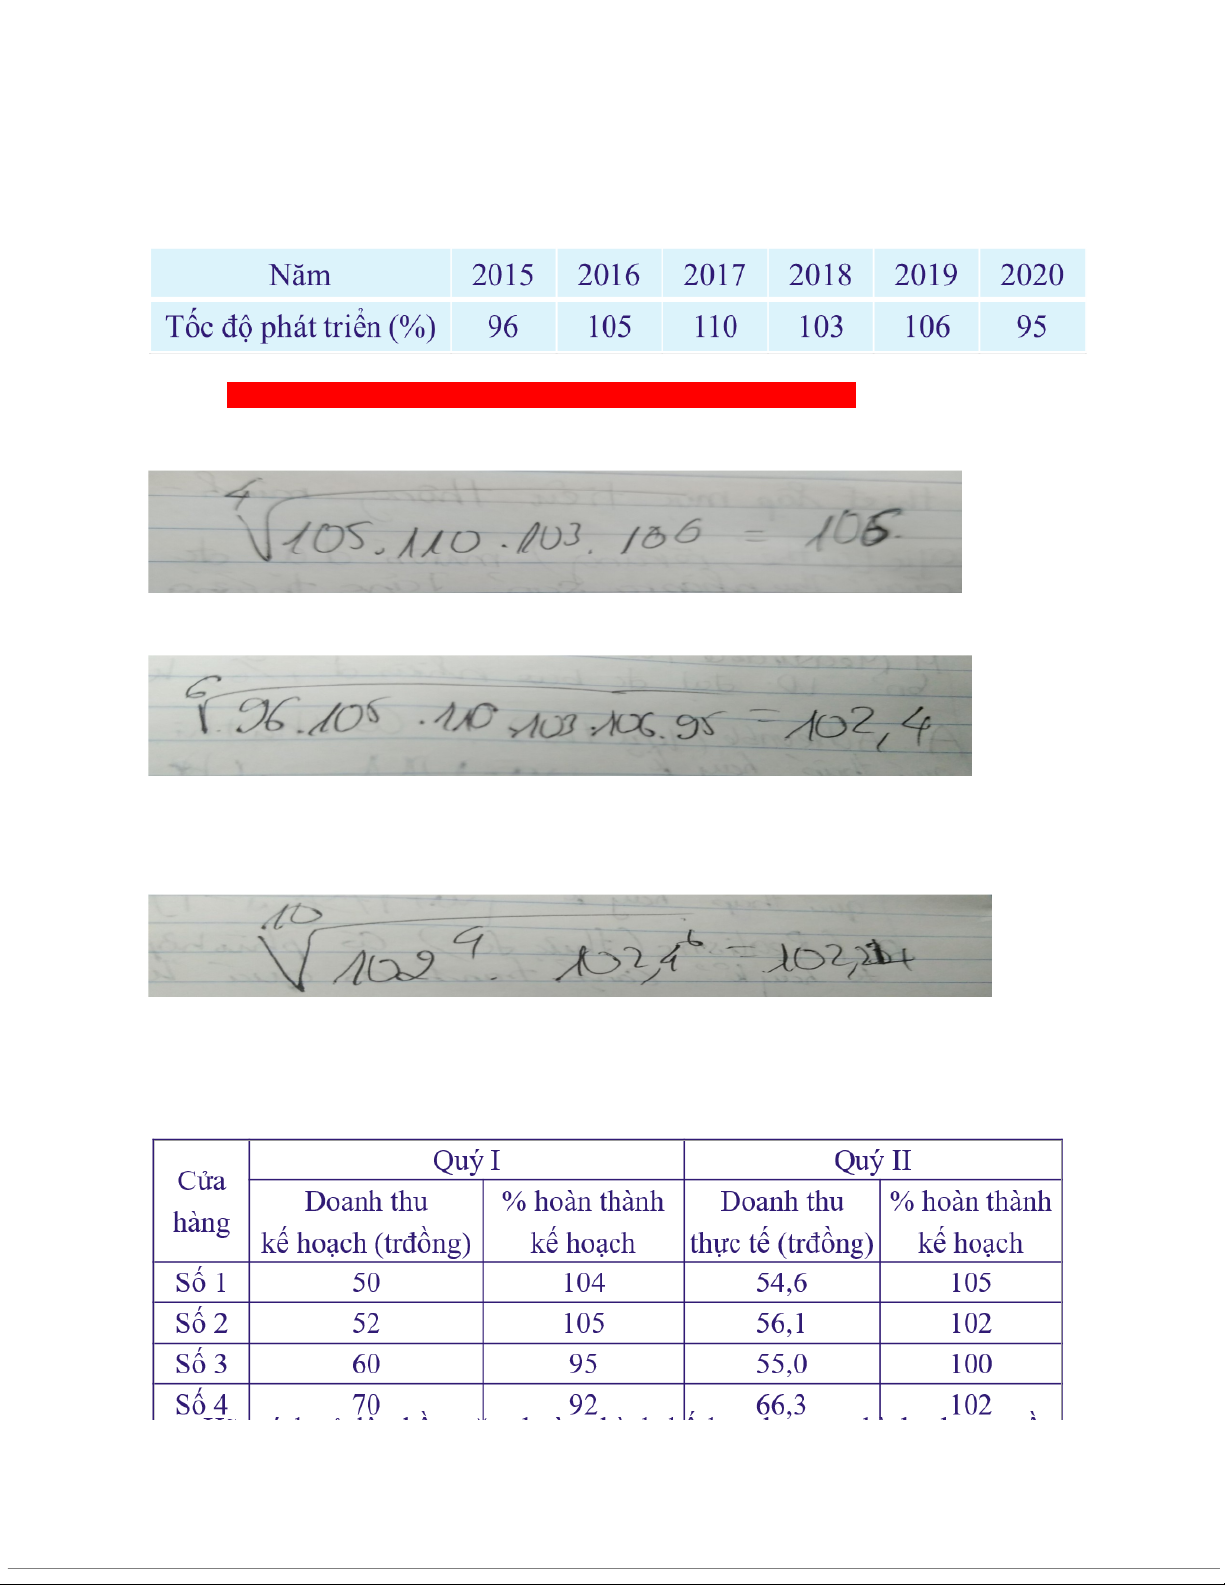 Năm 2015 2016 2017 2018 2019 2020
Tốc độ phát triển (%) 96 105 110 103 106 95
⁴√105.110.103.106 = 106.
⁶√96.105.110.103.106.95 = 102,4
¹⁰√102⁴. 102,4⁶ =
Cửa hàng Quý I Quý II
Doanh thu kế hoạch (trđồng) % hoàn thành kế hoạch Doanh thu thực tế (trđồng) % hoàn thành kế hoạch
Số 1 50 104 54,6 105
Số 2 52 105 56,1 102
Số 3 60 95 55,0 100
Số 4 70 92 66,3 102